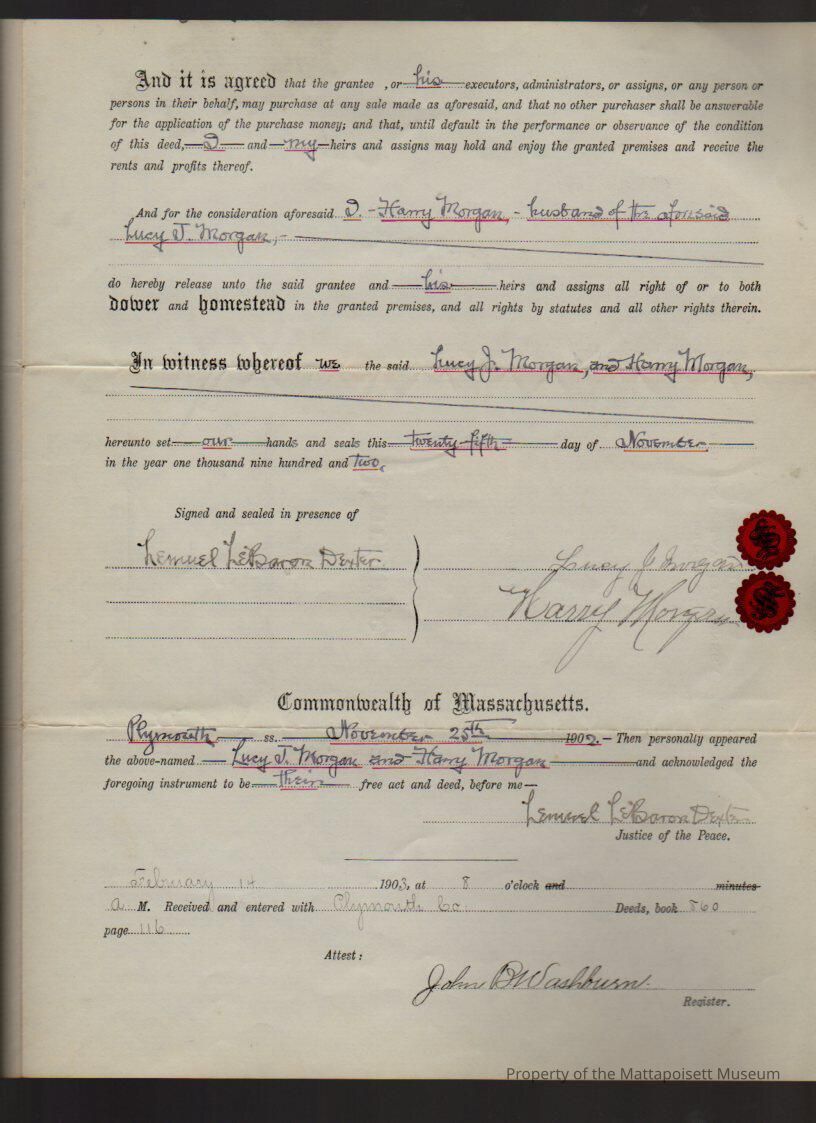 And it is agreed that the grantee , or his executors, administrators, or assigns, or any person or
persons in their behalf, may purchase at any sale made as aforesaid, and that no other purchaser shall be answerable
for the application of the purchase money; and that, until default in the performance or observance of the condition
of this deed, I and my heirs and assigns may hold and enjoy the granted premises and receive the
rents and profits thereof.
And for the consideration aforesaid I, - Harry Morgan, - husband of the aforesaid
Lucy J. Morgan, -
do hereby release unto the said grantee and his heirs and assigns all right of or to both
dower and homestead in the granted premises, and all rights by statutes and all other rights therein.
In witness whereof we the said Lucy J. Morgan, and Harry Morgan,
hereunto set our hands and seals this twenty-fifth day of November
in the year one thousand nine hundred and two.
Signed and sealed in presence of
Lemuel LeBaron Dexter
Lucy J Morgan
Harry Morgan
Commonwealth of Massachusetts.
Plymouth ss. November 25th 1902. - Then personally appeared
the above-named Lucy J. Morgan and Harry Morgan and acknowledged the
foregoing instrument to be their free act and deed, before me—
Lemuel LeBaron Dexter
Justice of the Peace.
February 14 1903, at 8 o'clock and minutes
A M. Received and entered with Plymouth Co. Deeds, book 860
page 116
Attest:
John B Washburn.
Register.
Property of the Mattapoisett Museum